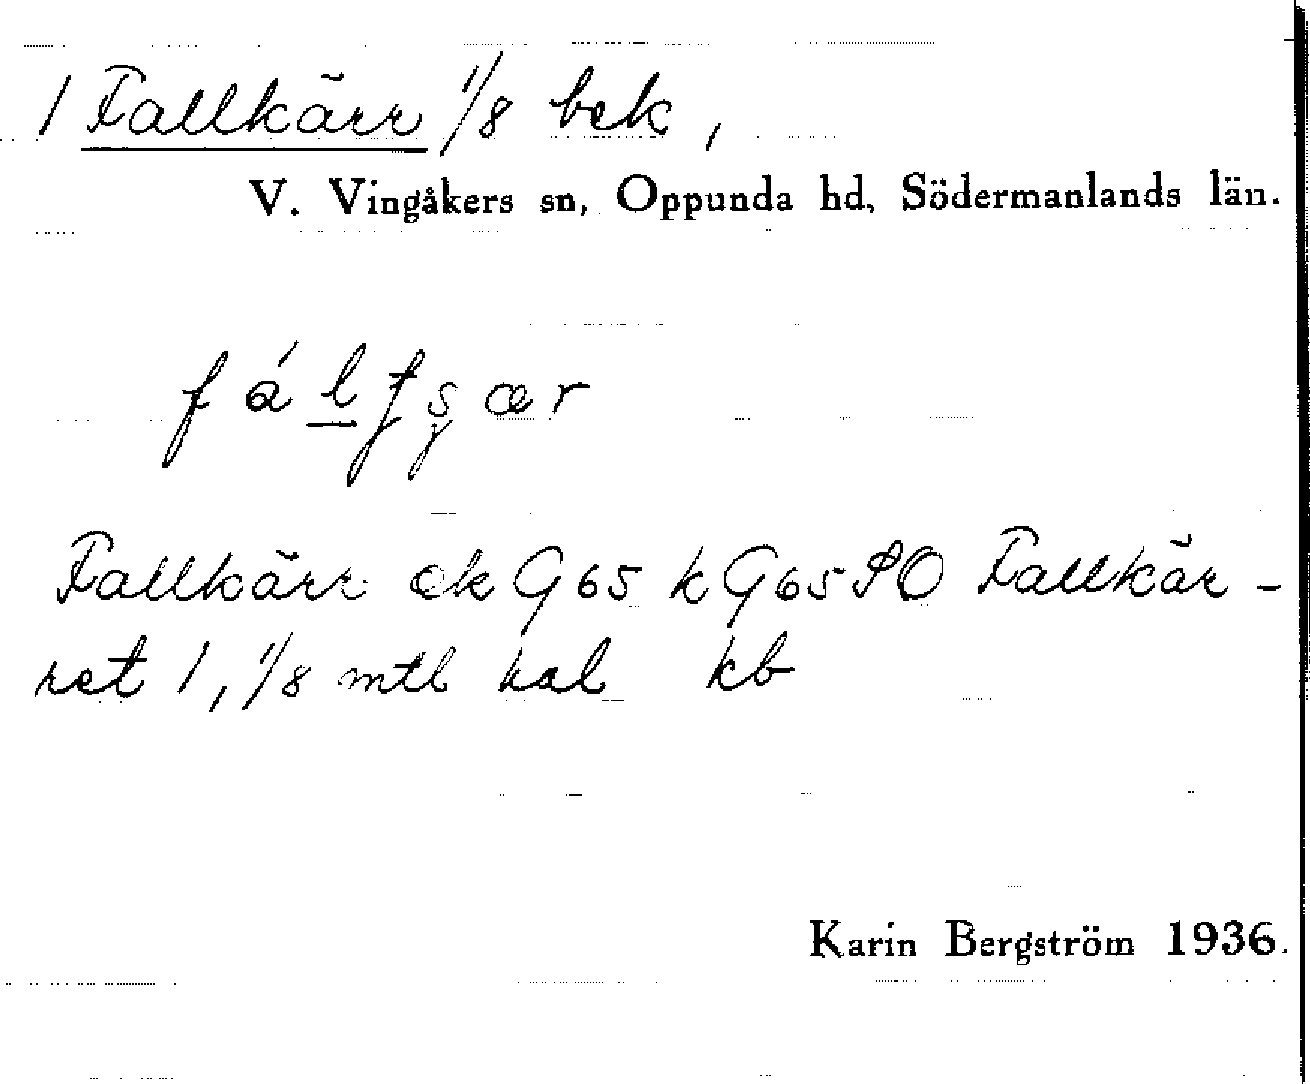 1 Fallkärr 1/8 bek,
V. Vingåkers sn, Oppunda hd, Södermanlands län.
Fallkärr ek G65 kG65 SO Fallkär-
ret 1, 1/8 mtl hal kb
Karin Bergström 1936.